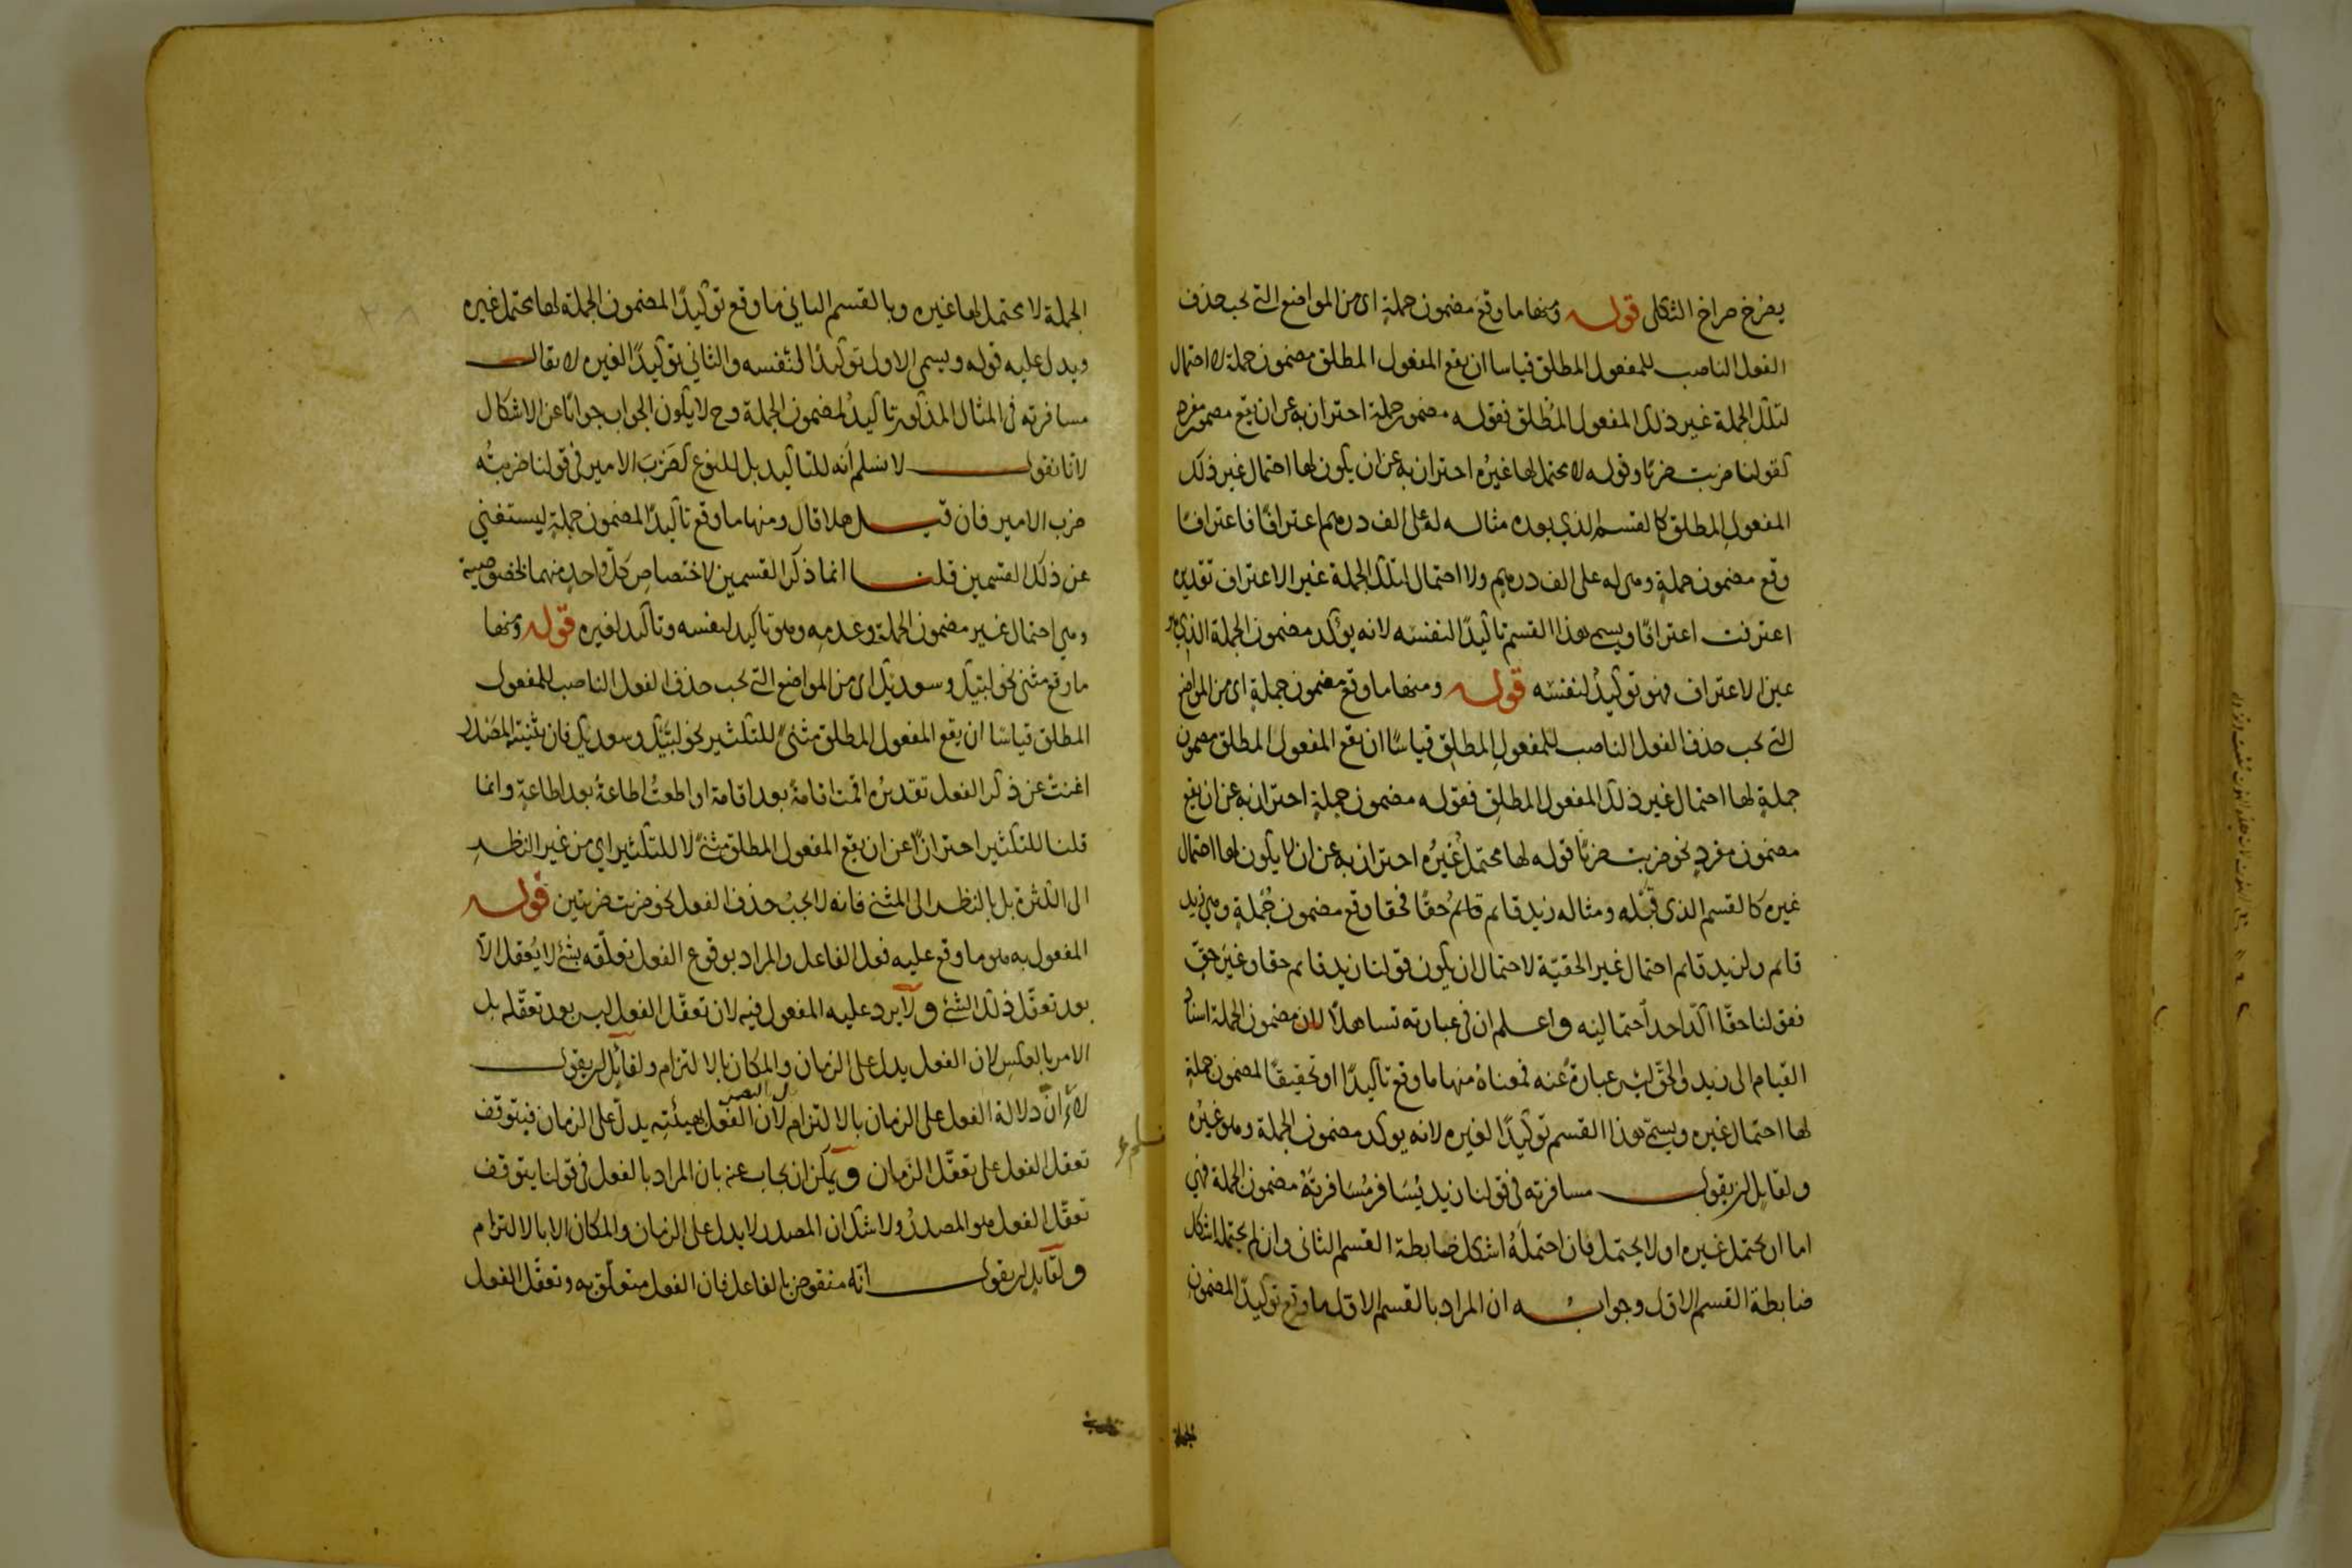 يصرخ صراخ الثكلى قوله ومنها ما وقع مضمون جملة اى من المواضع التى يجب حذف
الفعل الناصب للمفعول المطلق قياسا ان يقع المفعول المطلق مضمون جملة لا احتمال
لتلك الجملة غير ذلك المفعول المطلق فقوله مضمون جملة احتراز به عن ان يقع مضمون مفرد
كقولنا ضربت ضربًا وقوله لا محتمل لها غيره احتراز به عن ان يكون لها احتمال غير ذلك
المفعول المطلق كالقسم الذي بعده مثاله له على الف درهم اعترافًا فاعترافًا
وقع مضمون جملةٍ وهى له على الف درهم ولا احتمال لتلك الجملة غير الاعتراف تقديره
اعترفت اعترافًا ويسمى هذا القسم تاكيدًا لنفسه لانه يؤكد مضمون الجملة الذي هو
عين الاعتراف فهو توكيدٌ لنفسه قوله ومنها ما وقع مضمون جملةٍ اى من المواضع
التى يجب حذف الفعل الناصب للمفعولِ المطلقِ قياسًا ان يقع المفعول المطلق مضمون
جملةٍ لها احتمال غير ذلك المفعول المطلق فقوله مضمون جملةٍ احتراز به عن ان يقع
مضمون مفردٍ نحو ضربت ضربًا قوله لها محتمل غيرُه احتراز به عن ان لا يكون لها احتمال
غيره كالقسم الذى قبله ومثاله زيد قائم قائمٌ حقًا فحقا وقع مضمون جُملةٍ وهى زيد
قائم ولزيد قائم احتمال غير الحقيّة لاحتمال ان يكون قولنا زيد قائم حقا وغير حقٍّ
فقولنا حقّا اكّد احد احتماليه واعلم ان فى عبارته تساهلًا لان مضمون الجملة اسناد
القيام الى زيد والحقّ ليس عبارةً عنه فمعناهُ منها ما وقع تاكيدًا او تحقيقًا لمضمون جملةٍ
لها احتمال غيره ويسمّى هذا القسم توكيدًا لغيره لانه يوكد مضمون الجملة وهو غيرُه
ولقايلٍ ان يقول مسافرته فى قولنا زيد يُسَافر مُسَافرتَهُ مضمون الجملة فهى
اما ان يحتمل غيره او لا يحتمل فان احتملَهُ اشكل ضابطة القسم الثانى وان لم يحتمله اشكل
ضابطة القسم الاوّل وجوابه ان المراد بالقسم الاوّل ما وقع توكيدًا لمضمون
الجملة
الجملة لا محتمل لها غيره وبالقسم الثاني ما وقع توكيدًا لمضمون الجملة لها محتمل غيره
ويدل عليه قوله ويسمى الاول توكيدًا لنفسه والثاني توكيدًا لغيره لا يقال
مسافرته فى المثال المذكور تاكيدُ لمضمون الجملة وح لا يكون الجواب جوابًا عن الاشكال
لانّا نقول لا نسلم أنه للتاكيد بل للنوع كضَرْبَ الامير فى قولنا ضربتُه
ضرب الامير فان قيل هلا قال ومنها ما وقع تاكيدًا لمضمون جملةٍ ليستغني
عن ذلك القسمين قلنا انما ذكر القسمين لاختصاصِ كلّ واحدٍ منهما بخصوصيته
وهي احتمال غير مضمون الجملة وعدمِه وهو تاكيد لنفسه وتاكيد لغيره قوله ومنها
ما وقع مثنى نحو لبيك وسعديك اى من المواضع التى يجب حذف الفعل الناصب للمفعول
المطلق قياسًا ان يقع المفعول المطلق مثنىً للتكثير نحو لبَّيك وسعديك فان تثنية المصدر
اغنتْ عن ذكر الفعل تقديرُه اقمت اقامةً بعد اقامة او اطعتُ اطاعةً بعد اطاعةٍ وانما
قلنا للتكثير احترازًا عن ان يقع المفعول المطلق مثنىً لا للتكثير اي من غير النظرِ
الى الكثرة بل بالنظر الى المثنى فانه لا يجبُ حذف الفعل نحو ضربت ضربتين قوله
المفعول به هو ما وقع عليه فعل الفاعل والمراد بوقوع الفعل تعلّقه بشئٍ لا يُعقل الّا
بعد تعقّل ذلك الشئ ولا يرد عليه المفعول فيه لان تعقّل الفعل ليس بعد تعقّله بل
الامر بالعكسِ لان الفعل يدل على الزمان والمكان بالالتزام ولقائلٍ ان يقول
دلالة الفعل على الزمان بالالتزام لان الفعل بهيئتِه يدلّ على الزمان فيتوقف
تعقل الفعل على تعقّل الزَّمان ويمكن ان يجاب عنه بان المراد بالفعل فى قولنا يتوقف
تعقّل الفعل هو المصدرُ ولا شكّ ان المصدر لا يدل على الزمان والمكان الا بالالتزام
ولقايلٍ ان يقول انّه منقوض بالفاعل فان الفعل متعلّق به وتعقّل الفعل